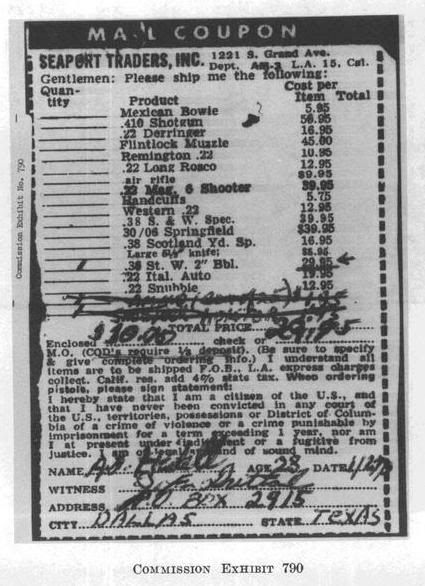 Commission Exhibit No. 790
MAIL COUPON
SEAPORT TRADERS, INC. 1221 S. Grand Ave.
Dept. AM-3 L.A. 15, Cal.
Gentlemen: Please ship me the following:
Quan-
tity Product Cost per
Item Total
Mexican Bowie 5.95
.410 Shotgun 50.95
.22 Derringer 16.95
Flintlock Muzzle 45.00
Remington .22 10.95
.22 Long Rosco 12.95
air rifle $9.95
.22 Mag. 6 Shooter 39.95
Handcuffs 5.75
Western .22 12.95
.38 S. & W. Spec. 39.95
30/06 Springfield $39.95
.38 Scotland Yd. Sp. 16.95
Large 5½" knife; $5.95
.38 St. W. 2" Bbl. 29.95
.22 Ital. Auto 19.95
.22 Snubbie 12.95
$10.00 TOTAL PRICE 29.95
Enclosed check or
M.O. (COD's require ⅓ deposit). (Be sure to specify
& give complete ordering info.) I understand all
items are to be shipped F.O.B., L.A. express charges
collect. Calif. res. add 4% state tax. When ordering
pistols, please sign statement:
I hereby state that I am a citizen of the U.S., and
that I have never been convicted in any court of
the U.S., territories, possessions or District of Colum-
bia of a crime of violence or a crime punishable by
imprisonment for a term exceeding 1 year, nor am
I at present under indictment or a fugitive from
justice. I am of legal age and of sound mind.
NAME A.J. Hidell AGE 28 DATE
WITNESS
ADDRESS P.O. BOX 2915
CITY DALLAS STATE TEXAS
COMMISSION EXHIBIT 790